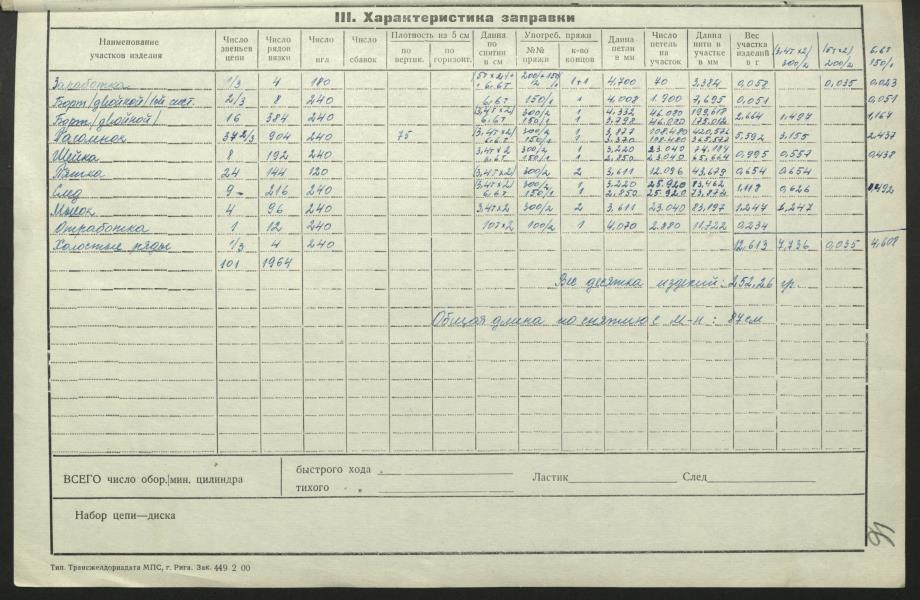 III. Характеристика заправки
Наименование участков изделия | Число звеньев цепи | Число рядов вязки | Число игл | Число сбавок | Плотность из 5 см по вертик. | по горизонт. | Длина по снятии в см | Употреб. пряжи №№ пряжи | к-во концов | Длина петли в мм | Число петель на участок | Длина нити в участке в мм | Вес участка изделий в г | (3,4т×2) 300/2 | (5т×2) 200/2 | 6.6т 150/1
Заработка 1/3 4 180 (5т×2)+ 6.6т 200/2+150/1 1+1 4,700 70 3,384 0,058 0,035 0,023
Борт/двойной/1й сист. 2/3 8 240 6.6т 150/1 1 4,008 1.900 7,695 0,051 0,051
Борт/двойной/ 16 384 240 (3,4т×2) 300/2 1 4,332 46.080 199,618 2,664 1,497 1,167
6.6т 150/1 1 3,798 46.080 175,012
Паголенок 37 2/3 904 240 75 (3,4т×2) 300/2 1 3,877 108.480 420,577 5,592 3,155 2,437
6.6т 150/1 1 3,370 108.480 365,577
Шейка 8 192 240 3,4т×2 300/2 1 3,220 23.040 74,189 0,995 0,557 0,438
6.6т 150/1 1 2,850 23.040 65,664
Пятка 24 144 120 (3,4т×2) 300/2 2 3,611 12.096 43,679 0,654 0,654
След 9 216 240 (3,4т×2) 300/2 1 3,220 25.920 83,462 1,118 0,626 0,492
6.6т 150/1 1 2,850 25.920 73,872
Мысок 4 96 240 3,4т×2 300/2 2 3,611 23.040 83,197 1,247 1,247
Отработка 1 12 240 10т×2 100/2 1 4,070 2.880 11,722 0,234
Холостые ряды 1/3 4 240 12,613 7,736 0,035 4,608
101 1964
Вес десятка изделий: 252,26 гр.
Общая длина по снятию с м-н: 87 см
ВСЕГО число обор./мин. цилиндра
быстрого хода
тихого „
Ластик
След
Набор цепи—диска
Тип. Трансжелдориздата МПС, г. Рига. Зак. 449 2 00